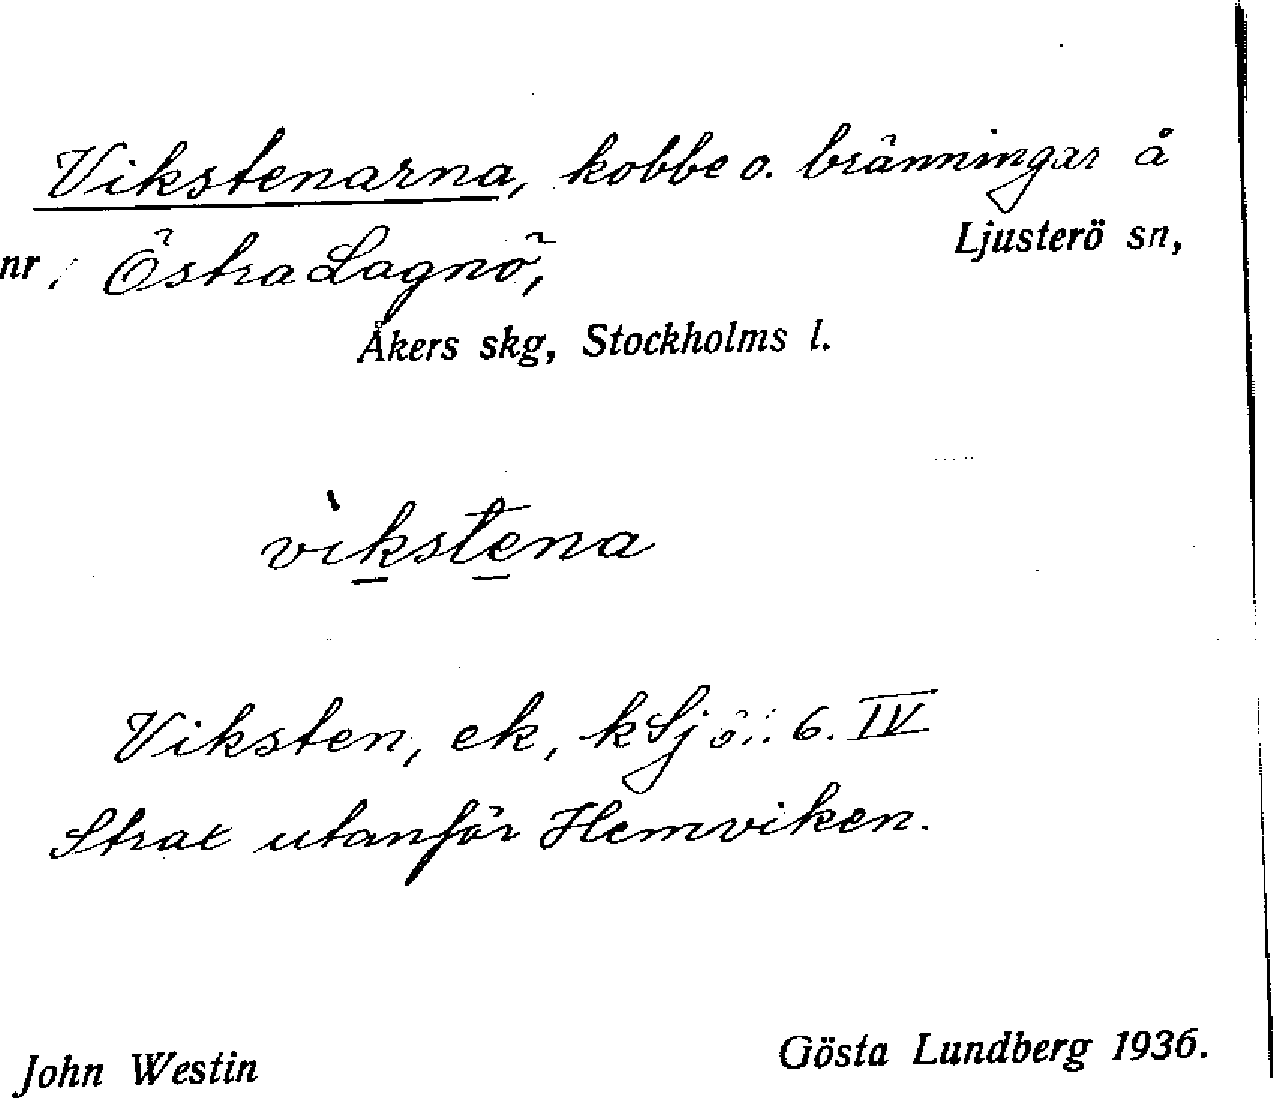 Vikstenarna, kobbe o. bränningar å
Ljusterö sn,
nr Östra Lagnö,
Åkers skg, Stockholms l.
vìkstena
Viksten, ek, kSjö:: 6. IV
Strax utanför Hemviken.
John Westin
Gösta Lundberg 1936.